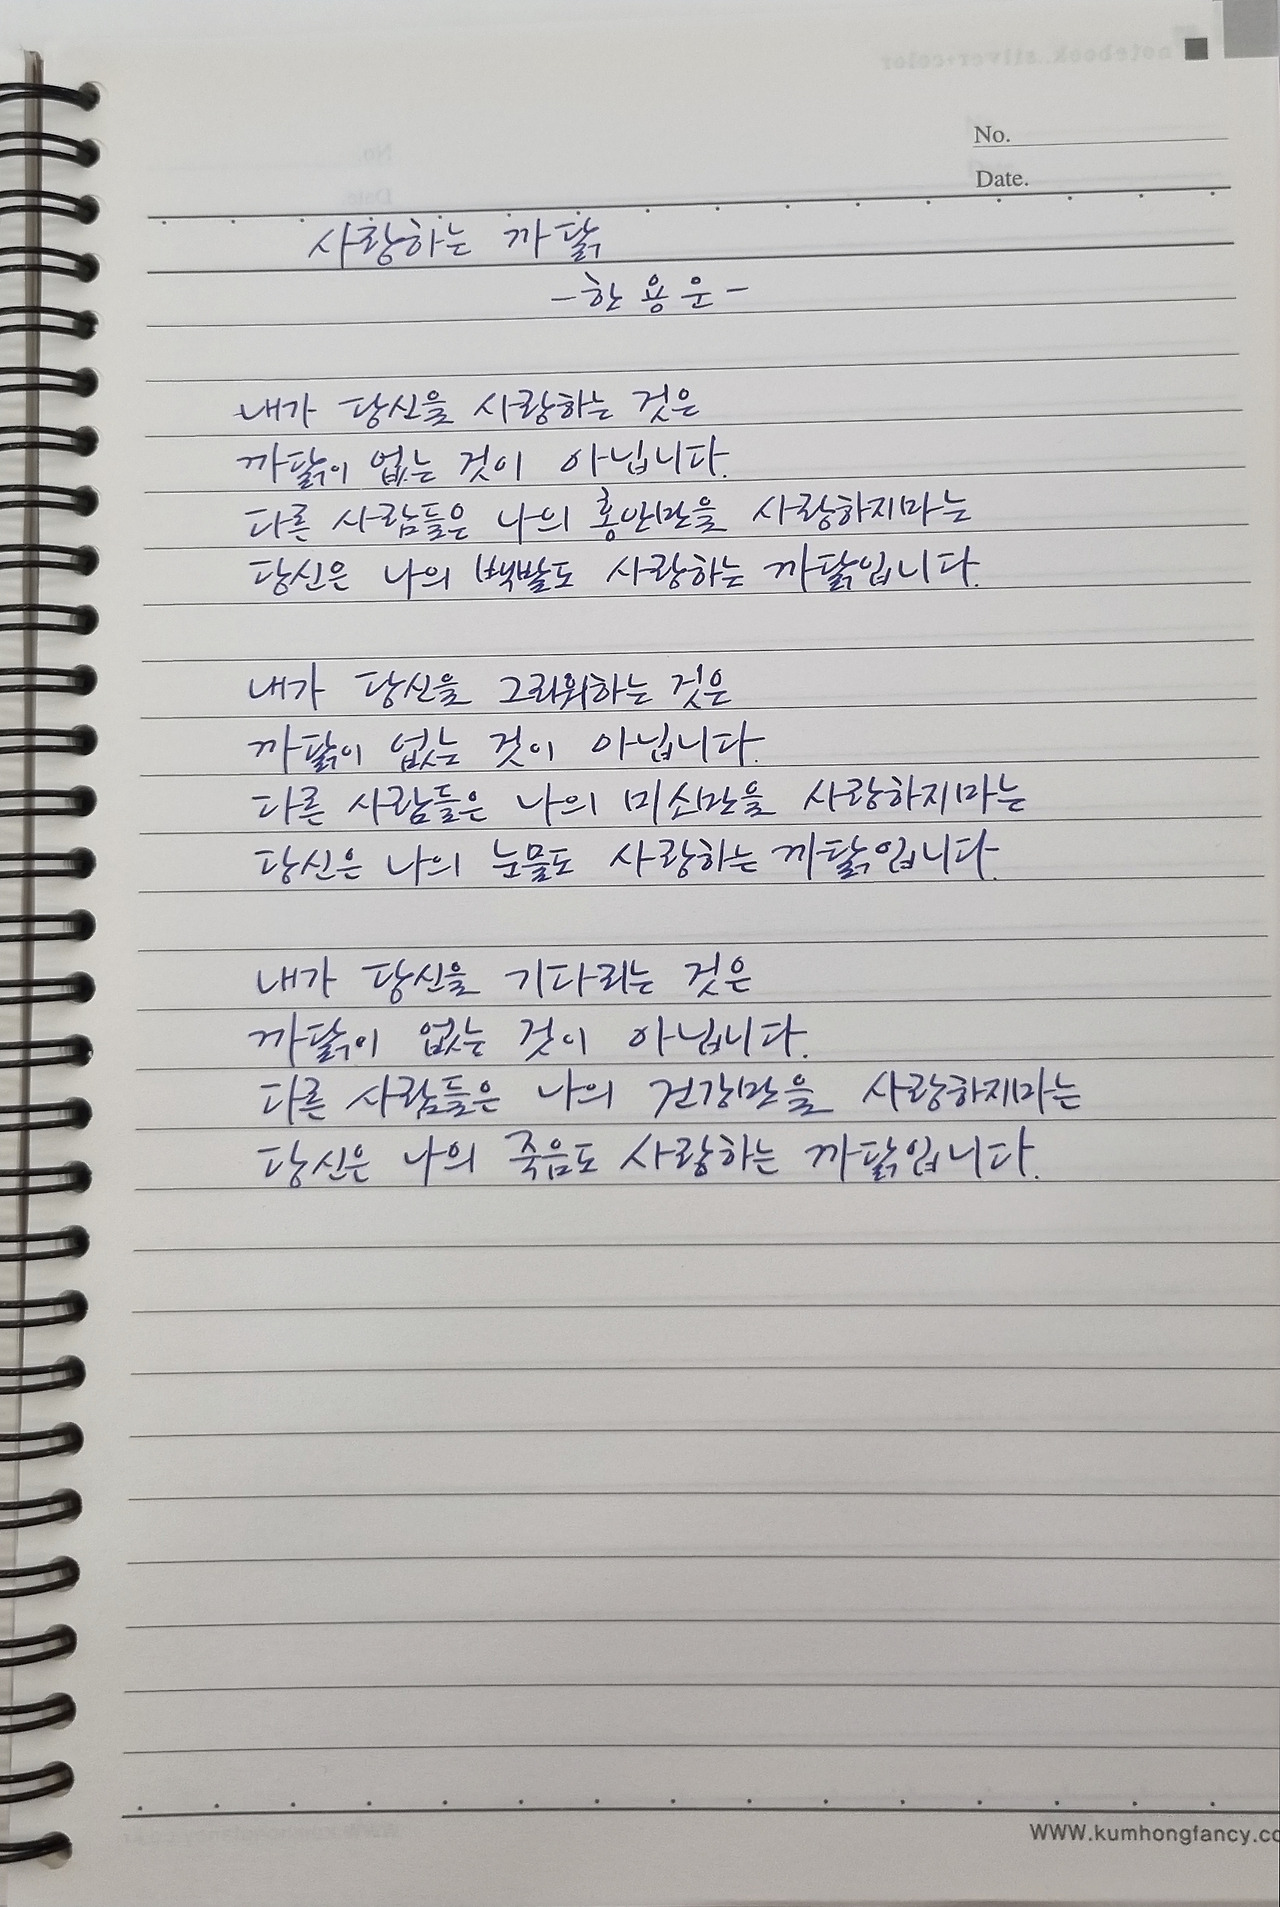 No.
Date.
사랑하는 까닭
- 한용운 -
내가 당신을 사랑하는 것은
까닭이 없는 것이 아닙니다.
다른 사람들은 나의 홍안만을 사랑하지마는
당신은 나의 백발도 사랑하는 까닭입니다.
내가 당신을 그리워하는 것은
까닭이 없는 것이 아닙니다.
다른 사람들은 나의 미소만을 사랑하지마는
당신은 나의 눈물도 사랑하는 까닭입니다.
내가 당신을 기다리는 것은
까닭이 없는 것이 아닙니다.
다른 사람들은 나의 건강만을 사랑하지마는
당신은 나의 죽음도 사랑하는 까닭입니다.
www.kumhongfancy.co